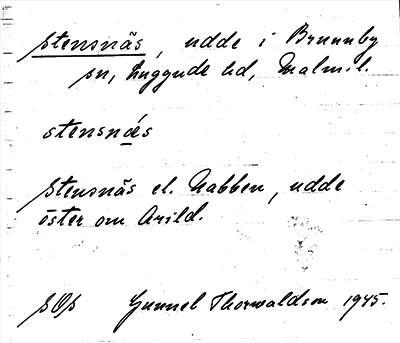 Stensnäs, udde i Brunnby
sn, Luggude hd, Malm.l.
stensnäs
Stensnäs el. Nabben, udde
öster om Arild.
SOS Gunnel Thorwaldson 1945.